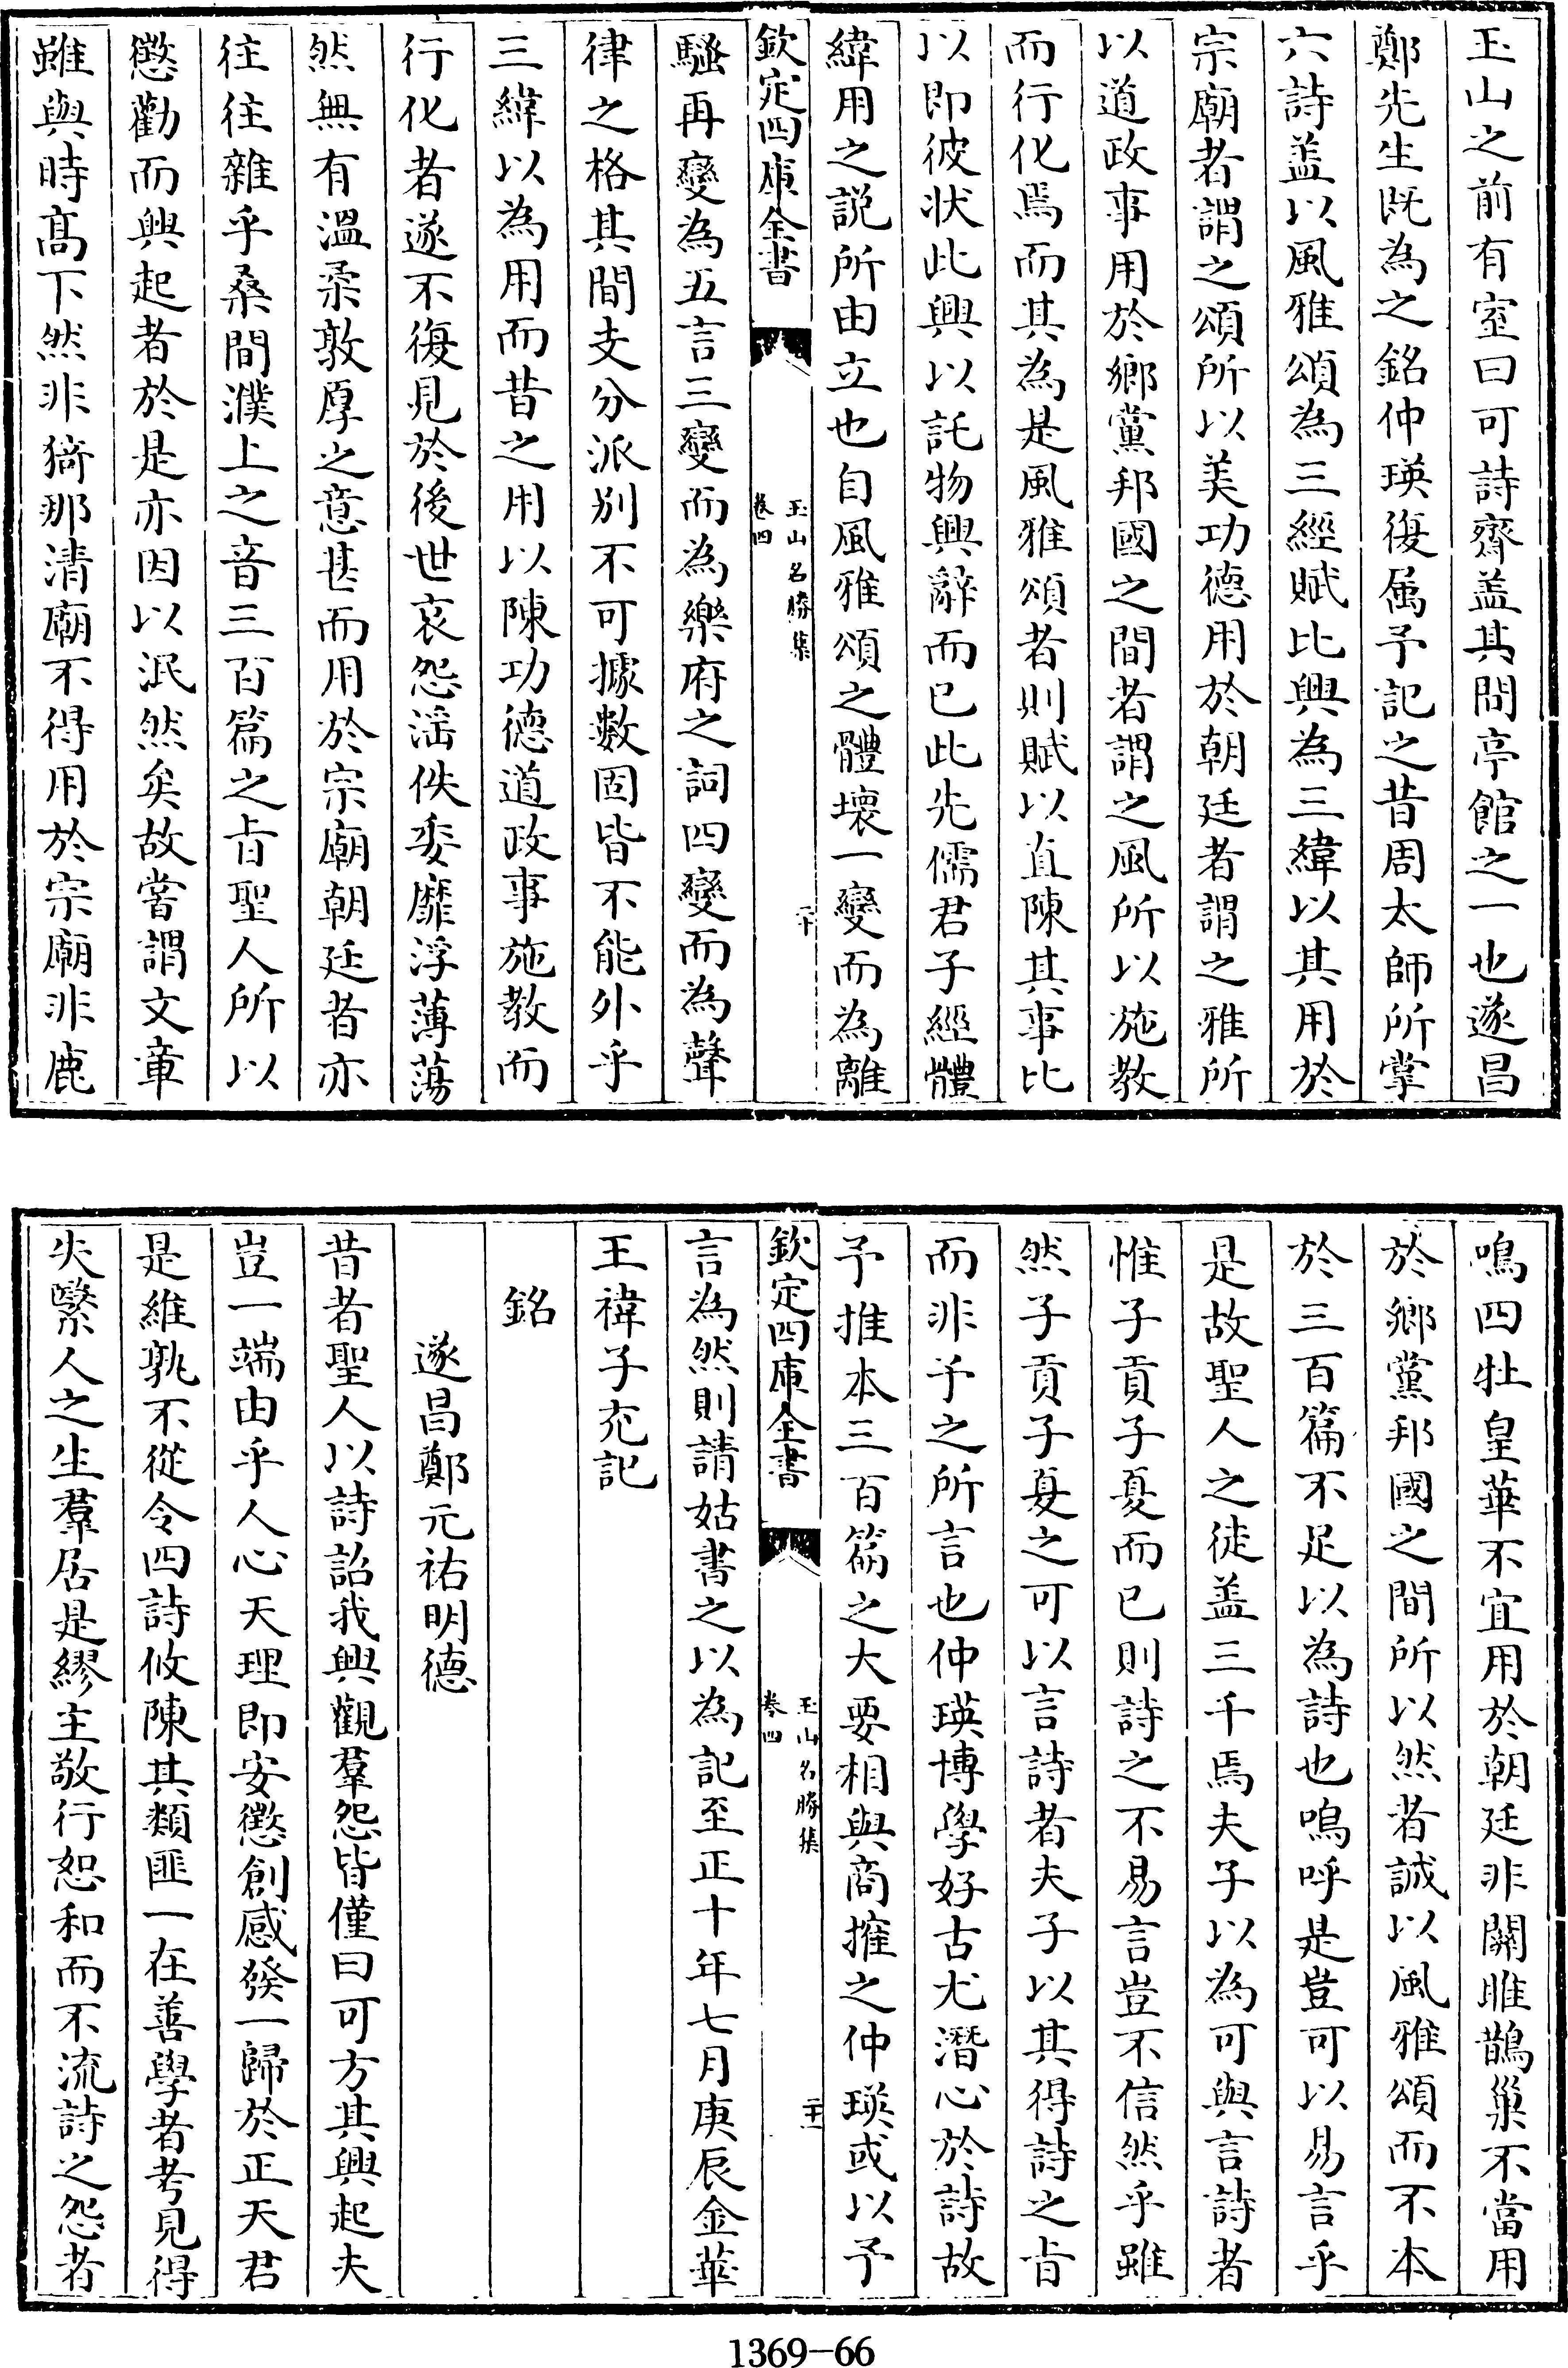 玉山之前有室曰可詩齋盖其問亭館之一也遂昌
鄭先生既為之銘仲瑛復属予記之昔周太師所掌
六詩盖以風雅頌為三經賦比興為三緯以其用於
宗廟者謂之頌所以美功德用於朝廷者謂之雅所
以道政事用於鄉黨邦國之間者謂之風所以施教
而行化焉而其為是風雅頌者則賦以直陳其事比
以即彼状此興以託物興辭而已此先儒君子經體
緯用之説所由立也自風雅頌之體壞一變而為離
欽定四庫全書
玉山名勝集
卷四
二十
騷再變為五言三變而為樂府之詞四變而為聲
律之格其間支分派别不可據數固皆不能外乎
三緯以為用而昔之用以陳功德道政事施教而
行化者遂不復見於後世哀怨滛佚委靡浮薄蕩
然無有溫柔敦厚之意甚而用於宗廟朝廷者亦
往往雜乎桑間濮上之音三百篇之㫖聖人所以
懲勸而興起者於是亦因以泯然矣故嘗謂文章
雖與時髙下然非猗那清廟不得用於宗廟非鹿
鳴四牡皇華不宜用於朝廷非關雎鵲巢不當用
於鄉黨邦國之間所以然者誠以風雅頌而不本
於三百篇不足以為詩也嗚呼是豈可以易言乎
是故聖人之徒盖三千焉夫子以為可與言詩者
惟子貢子夏而已則詩之不易言豈不信然乎雖
然子貢子夏之可以言詩者夫子以其得詩之㫖
而非予之所言也仲瑛博學好古尤潛心於詩故
予推本三百篇之大要相與商搉之仲瑛或以予
欽定四庫全書
玉山名勝集
卷四
二十一
言為然則請姑書之以為記至正十年七月庚辰金華
王褘子充記
銘
遂昌鄭元祐明德
昔者聖人以詩詔我興觀羣怨皆僅曰可方其興起夫
豈一端由乎人心天理即安懲創感發一歸於正天君
是維孰不從令四詩攸陳其類匪一在善學者考見得
失緊人之生羣居是繆主敬行恕和而不流詩之怨者
1369-66